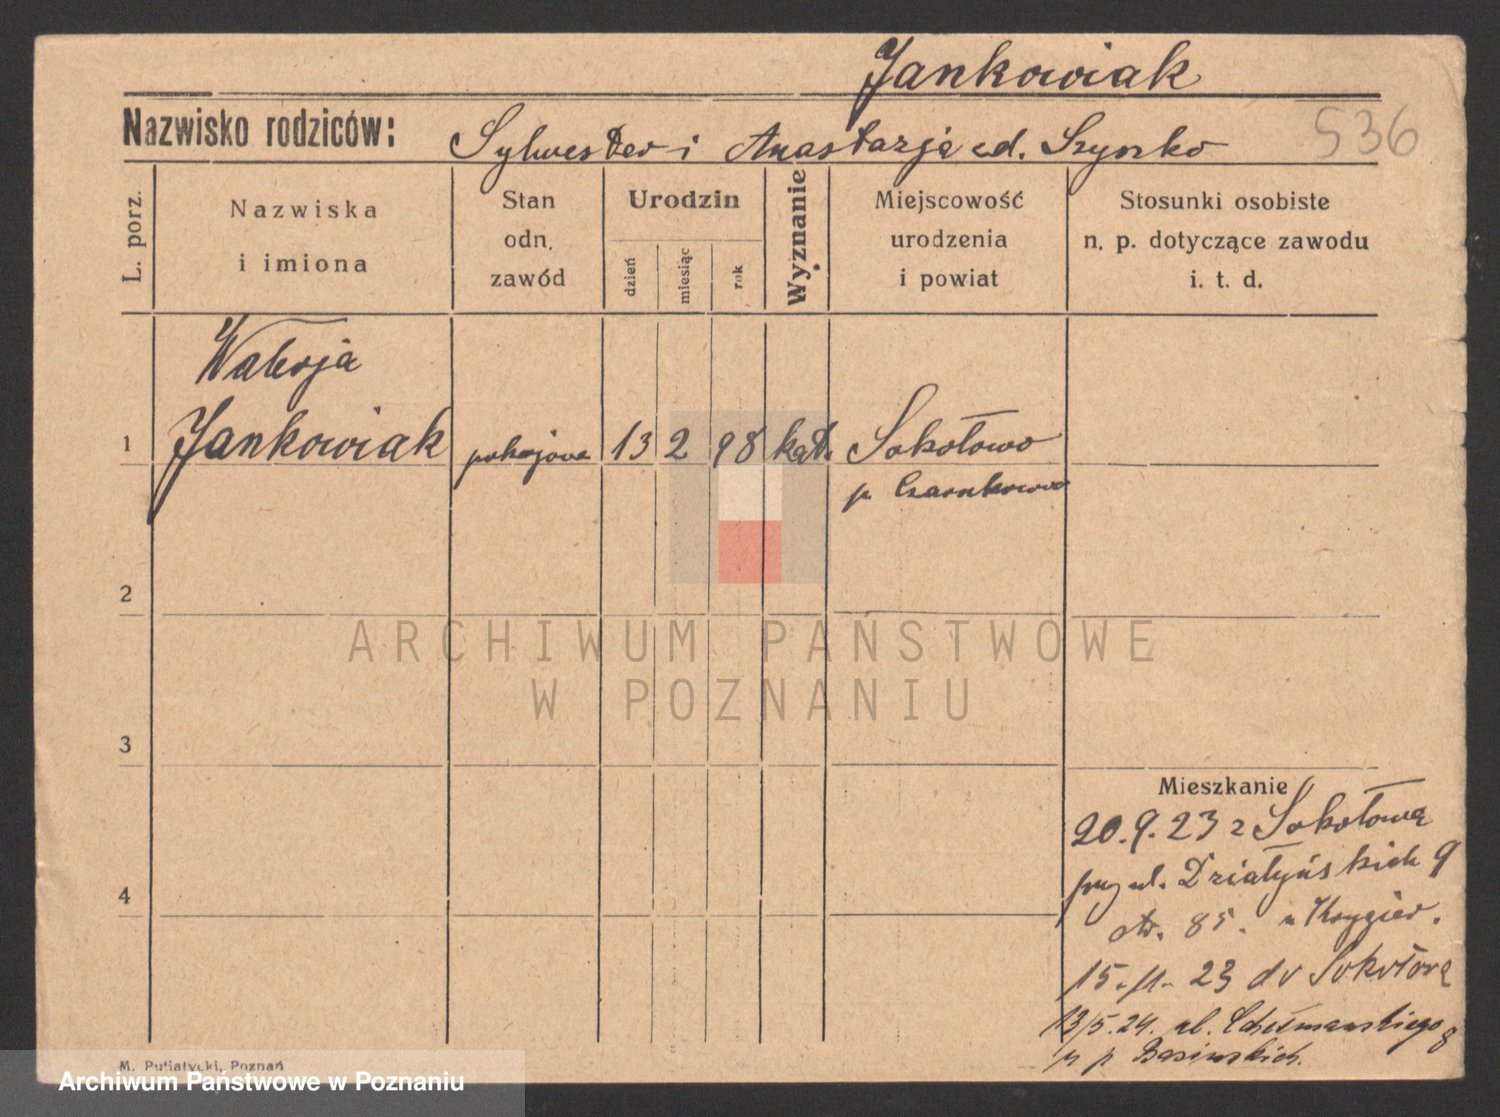 Jankowiak
Nazwisko rodziców: Sylwester i Anastazja zd. Szyszko
536
L. porz.
Nazwiska i imiona
Stan odn. zawód
Urodzin
dzień
miesiąc
rok
Wyznanie
Miejscowość urodzenia i powiat
Stosunki osobiste n. p. dotyczące zawodu i. t. d.
Walerja
1 Jankowiak pokojowa 13 2 98 kat. Sokołowo
p Czarnkowo
2
ARCHIWUM PAŃSTWOWE
W POZNANIU
3
Mieszkanie
20.9.23 z Sokołowa
przy ul. Działyńskich 9
str. 85. u Krygier.
15.11.23 do Sokołowa
13/5.24. ul. Chełmońskiego 8
p
M. Putiatycki, Poznań
Archiwum Państwowe w Poznaniu